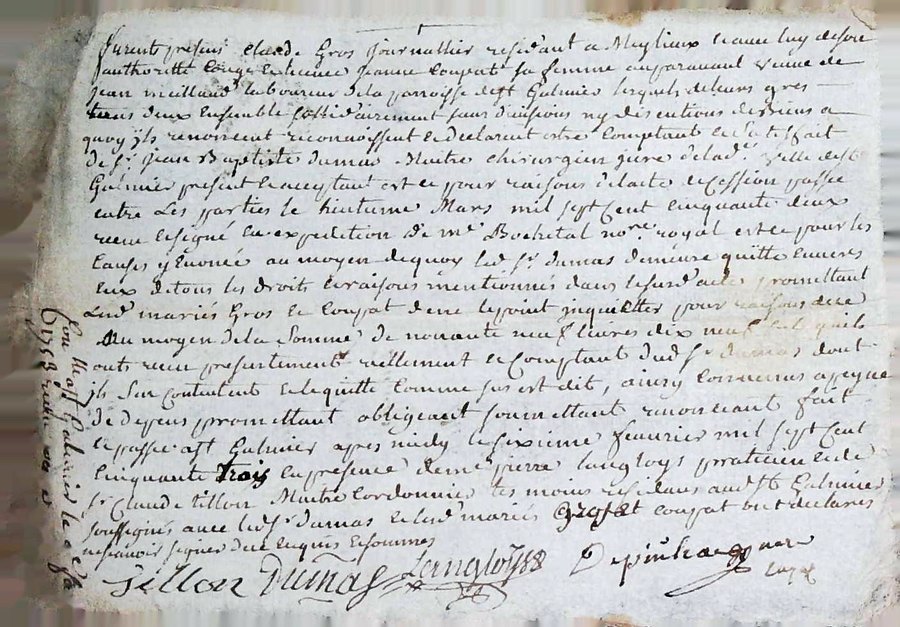 furent presens claude Gros journallier residant a Meylieux lequel luy de son
authoritte conge et licence jeanne coupat sa femme auparavant veuve de
jean meilland laboureur de la parroisse de st Galmier lesquels de leurs gres
tous deux ensemble sollidairement sans divisions ny discutions de biens a
quoy ils renoncent reconnoissent et declarent estre comptant et satisfait
de sr jean Baptiste dumas Maitre chirurgien jure de lad. ville de st
Galmier present et acceptant est ce pour raisons de lacte de cession passe
entre Les parties le huitieme Mars mil sept Cent cinquante deux
receu et signé en expedition de me Bochetal nore royal est ce pour les
causes y enoncé au moyen de quoy led sr dumas demeure quitte envers
eux de tous les droits et raisons mentionnés dans le susd acte promettant
lesd mariés Gros et Coupat de ne le point inquietter pour raisons de ce
Au moyen de la Somme de nonante neuf livres dix neuf sols quils
ont receu presentement reellement et comptant dud sr dumas dont
ils sen contentent et le quitte comme sus est dit, ainsy convenus a peyne
de depens promettant obligeant soumettant renonceant fait
et passé a st Galmier apres midy le sixieme feuvrier mil sept Cent
Cinquante trois en presence de me pierre langloys praticien et de
sr Claude tillon Maitre Cordonnier temoins residans aud st Galmier
soussignés avec led sr dumas et lesd mariés gros et coupat ont declarés
ne scavoir signer de ce enquis et sommes
tillon Dumas Langloys